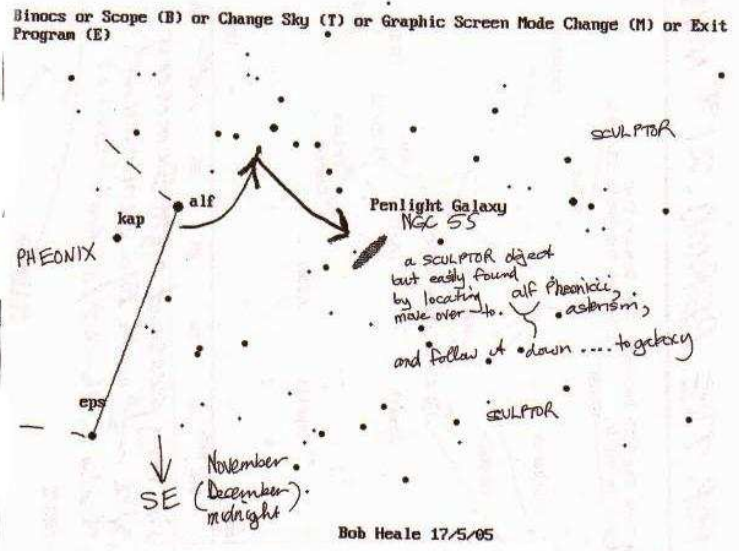 Binocs or Scope (B) or Change Sky (T) or Graphic Screen Mode Change (M) or Exit
Program (E)
SCULPTOR
alf
Penlight Galaxy
NGC 55
kap
PHEONIX
a SCULPTOR object
but easily found
by locating alf Pheonicii,
move over to asterism,
and follow it down .... to galaxy
eps
SCULPTOR
November
SE (December)
midnight
Bob Heale 17/5/05